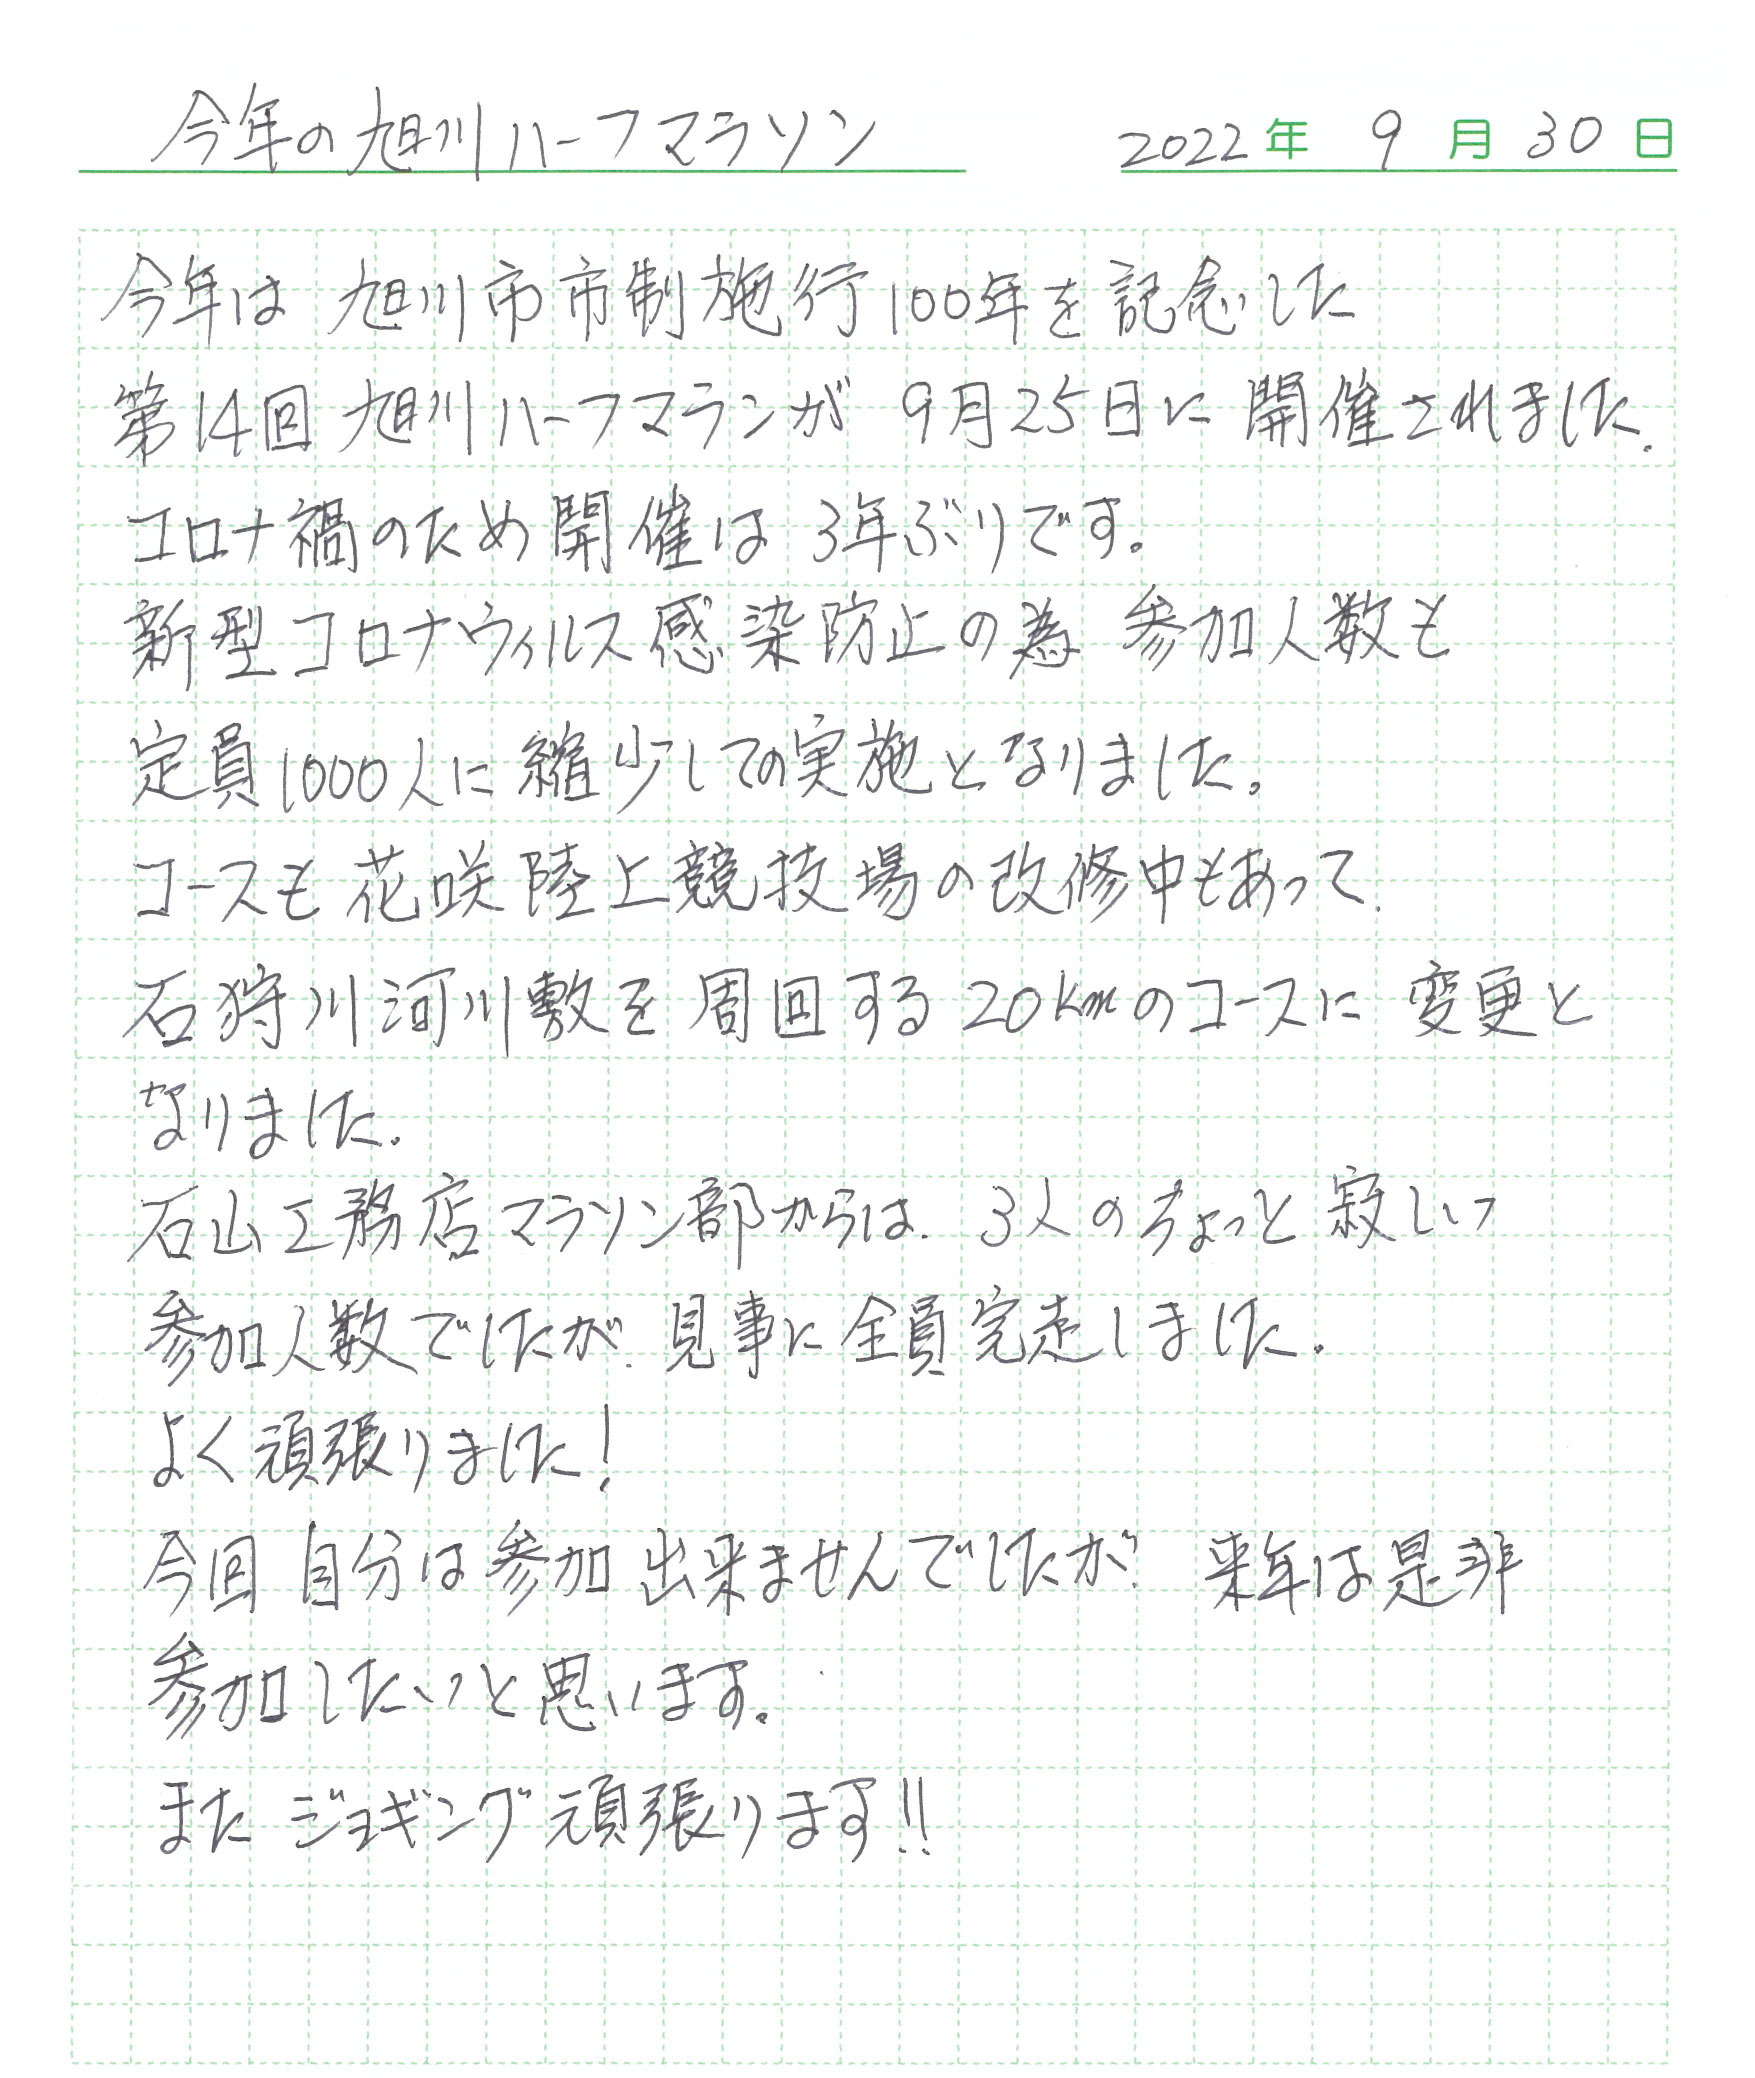 今年の旭川ハーフマラソン 2022年 9月30日
今年は 旭川市市制施行100年を記念した
第14回 旭川ハーフマランが 9月25日に開催されました.
コロナ禍のため開催は 3年ぶりです。
新型コロナウィルス感染防止の為 参加人数も
定員1000人に縮少しての実施となりました。
コースも花咲陸上競技場の改修中もあって.
石狩川河川敷を周回する20kmのコースに変更と
なりました.
石山工務店マラソン部からは. 3人のちょっと寂しい
参加人数でしたが. 見事に全員完走しました.
よく頑張りました!
今回 自分は参加出来ませんでしたが. 来年は是非
参加したいと思います。
またジョギング頑張ります!!